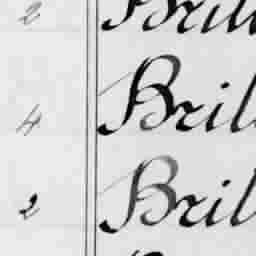 2 Bril
4 Bril
2 Bril